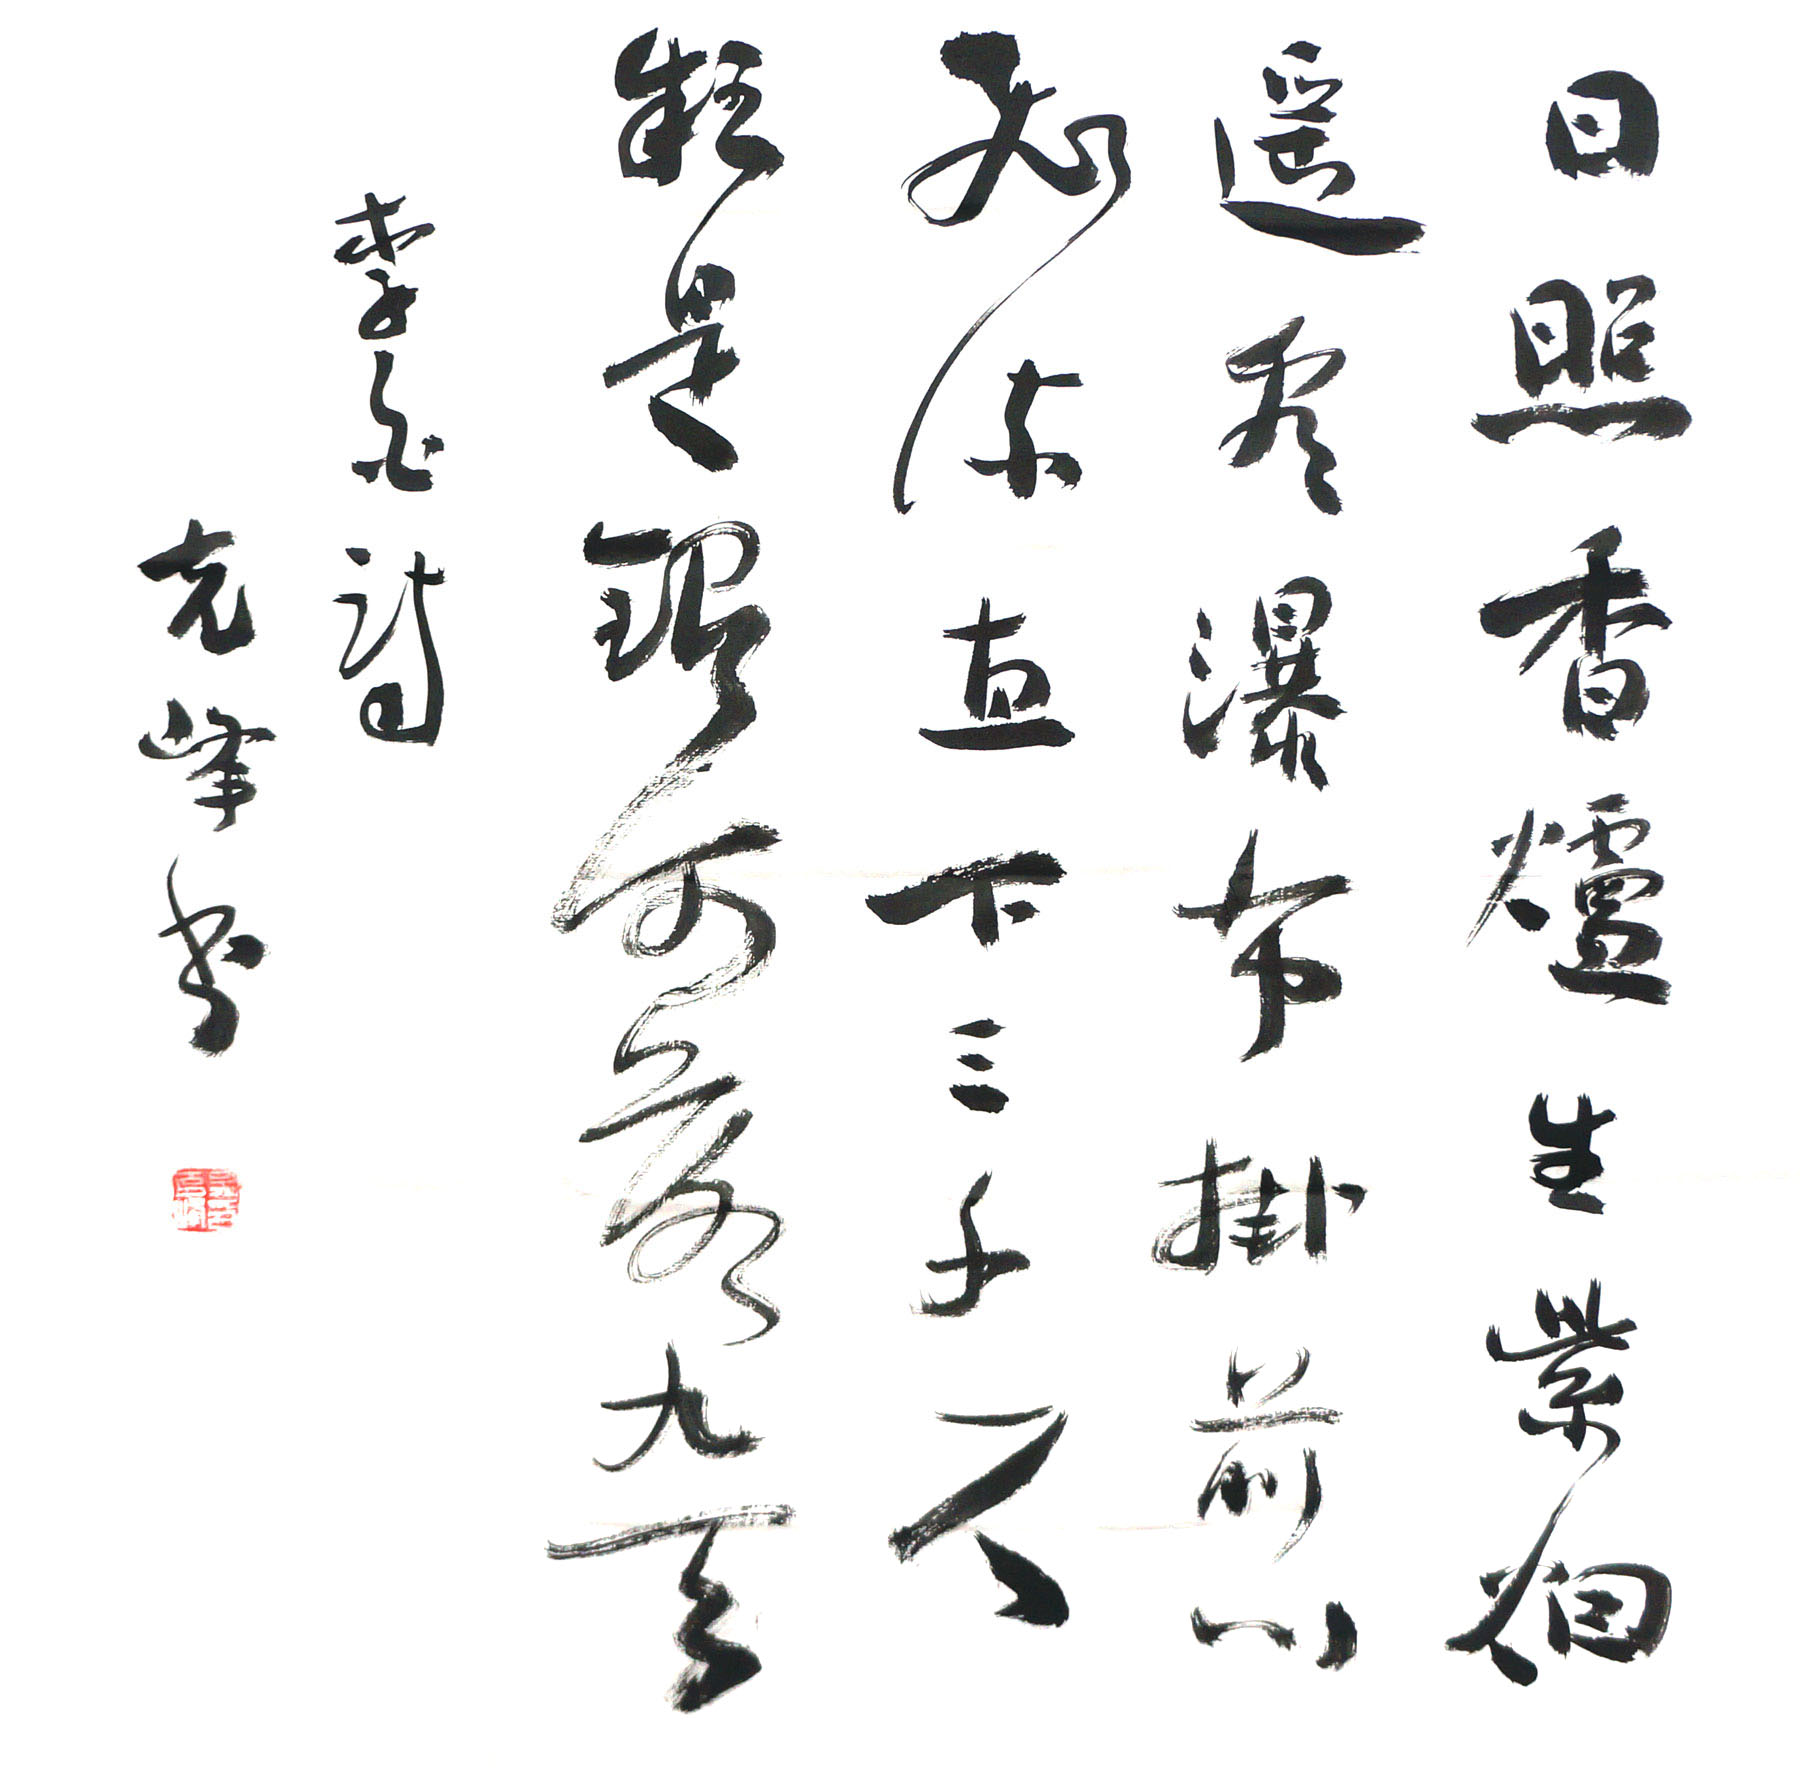 日照香爐生紫烟
遙看瀑布掛前川
飛流直下三千尺
疑是銀河落九天
李白詩
克峰書